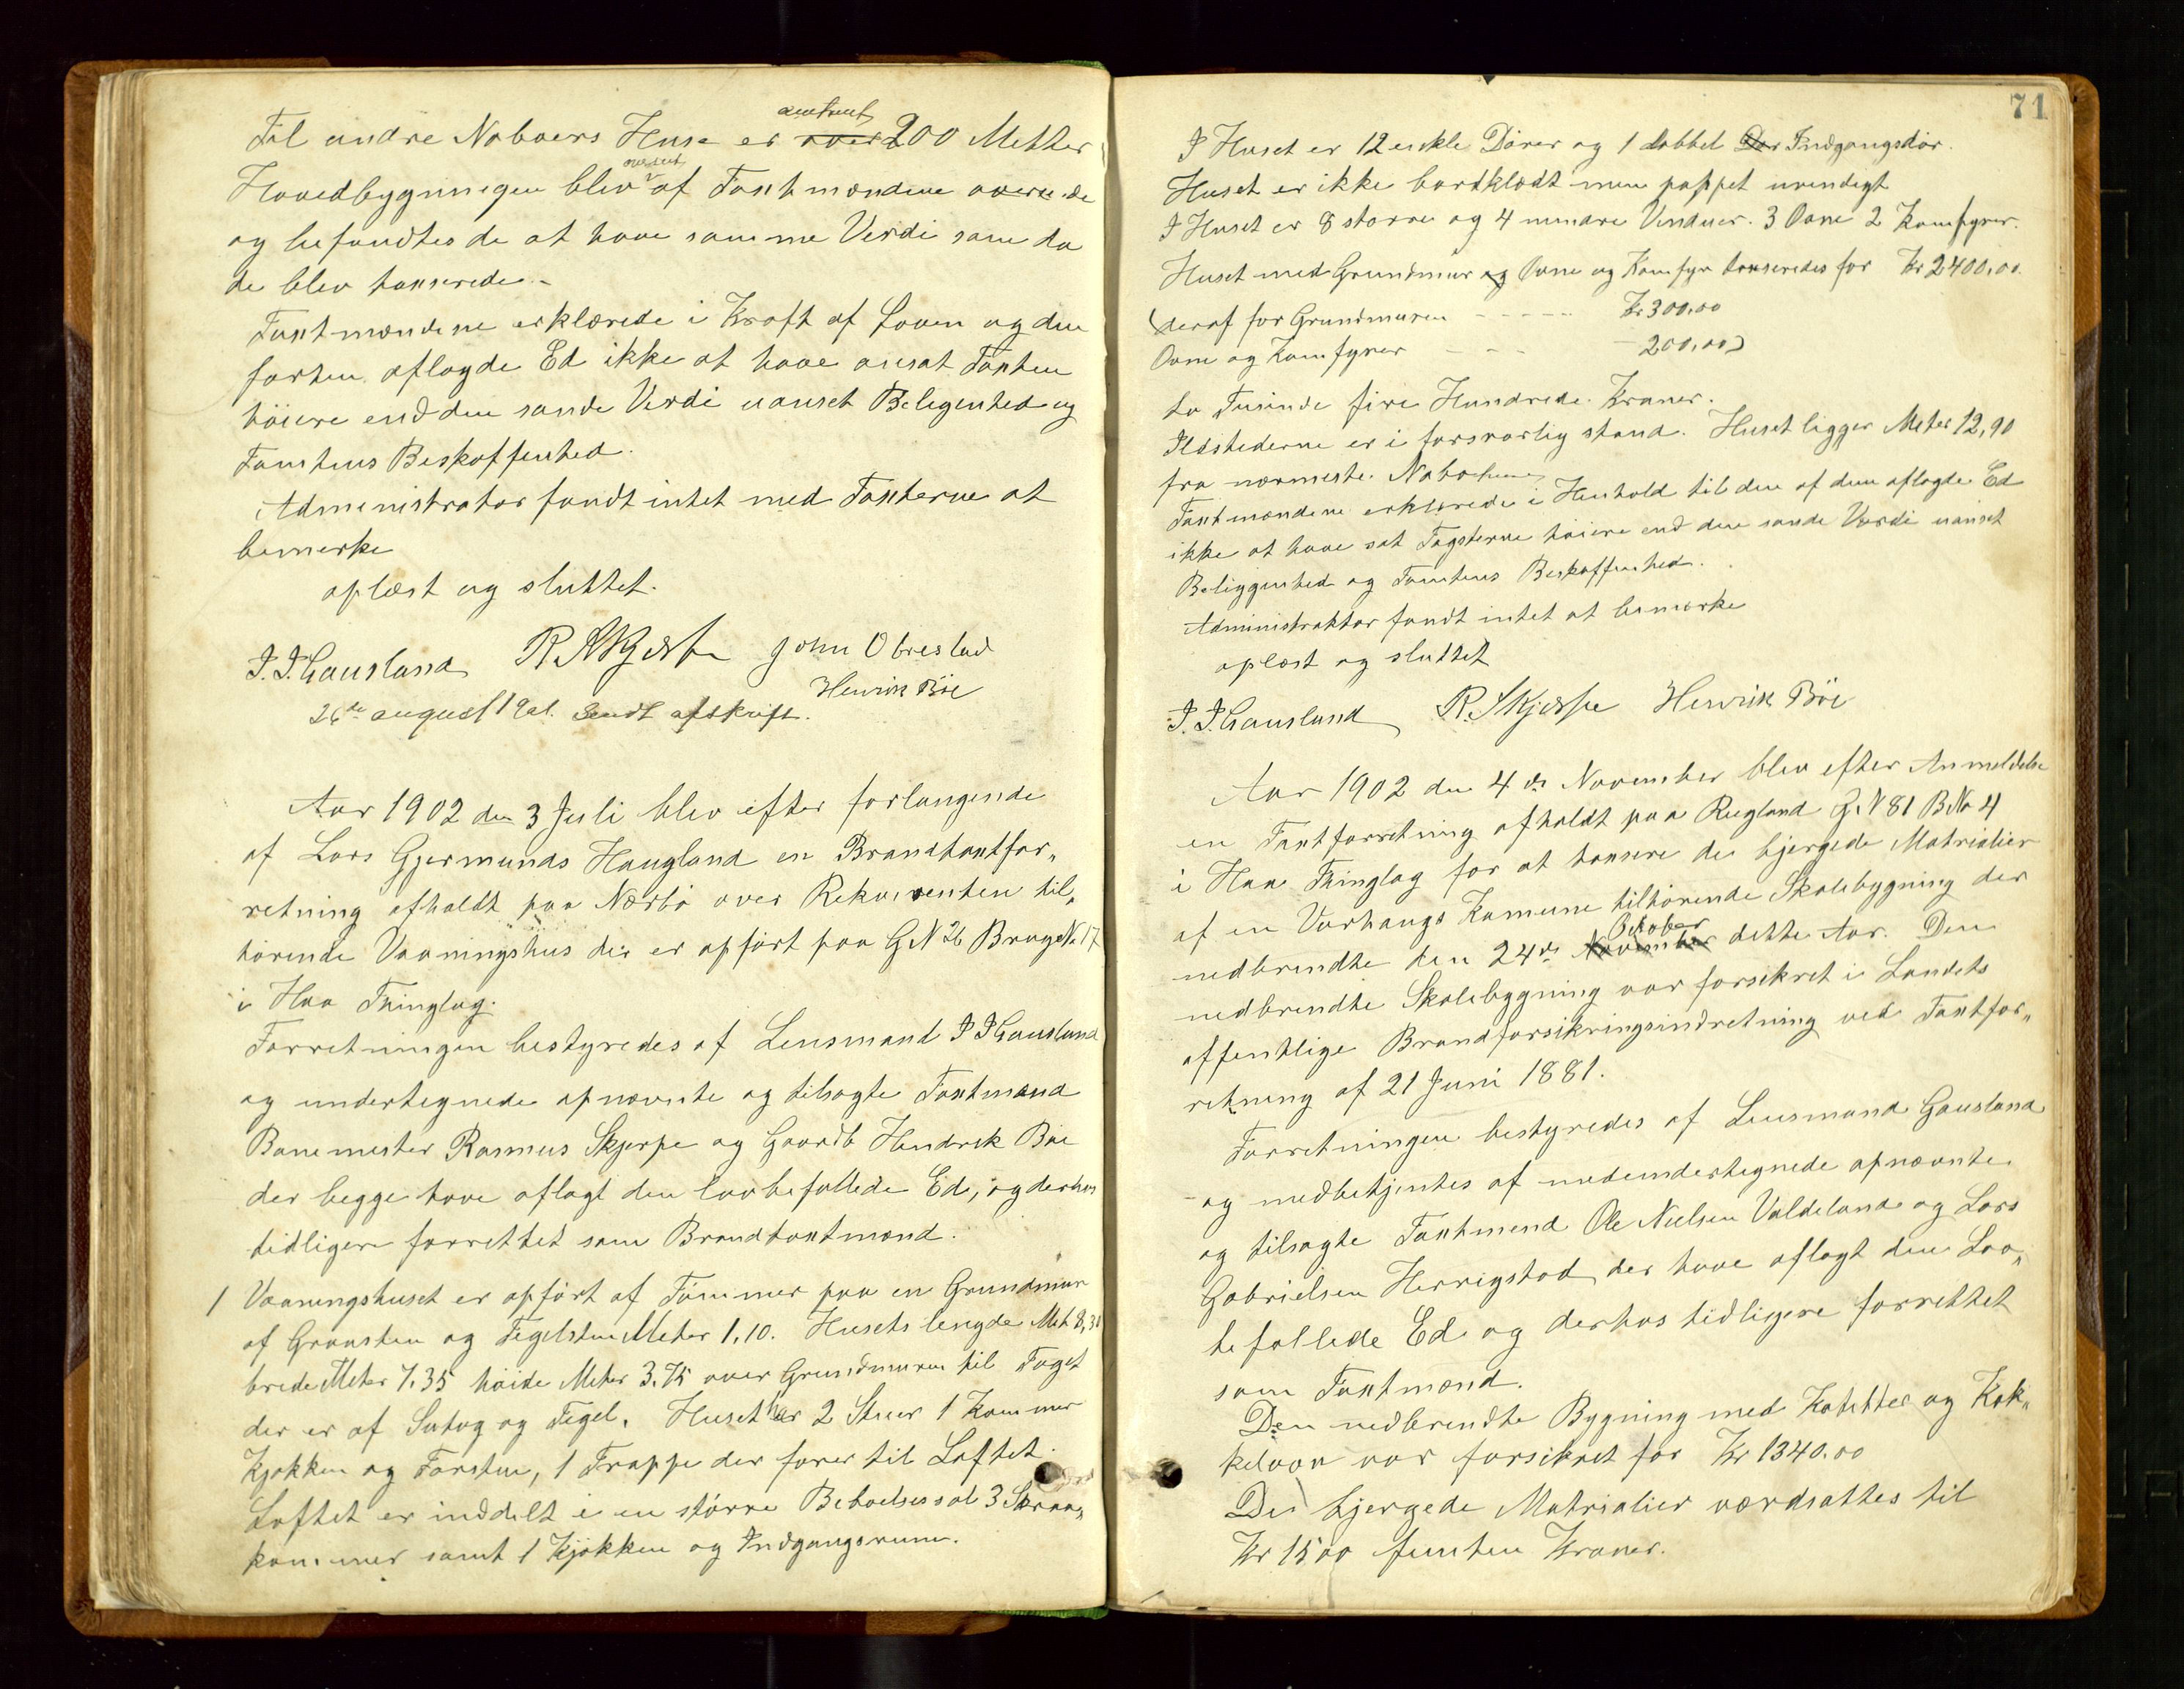 Til andre Naboers Huse er omtrent 200 Metter
Hovedbygningen blev af Taxtmændene
og befandtes de at have samme Verdi som da
de blev taxserede.
Taxtmændene erklærede i Kraft af Loven og den
forhen aflagde Ed ikke at have ansat Taxten
höiere end den sande Verdi uanset Beligenhed og
Tomtens Beskaffenhed.
Administrator fandt intet med Taxterne at
bemerke
oplæst og sluttet.
J. J. Gausland R. Skjerpe John Obrestad
Henrik Böe
26de august 1901. Sendt afskrift.
Aar 1902 den 3 Juli blev efter forlangende
af Lars Gjermunds Haugland en Brandtaxtfor„
retning afholdt paa Nærbö over Rekvirenten til„
hörende Vaaningshus der er opfört paa G.N 26 Brugs No 17
i Haa Thinglag.
Forretningen bestyredes af Lensmand J J Gausland
og undertegnede opnævnte og tilsagte Taxtmænd
Banemester Rasmus Skjerpe og Gaardb Hendrek Böe
der begge have aflagt den lovbefallede Ed, og derhos
tidligere forrettet som Brandtaxtmænd.
1 Vaaningshuset er opfört af Tömmer paa en Grundmur
af Graasten og Tegelsten Meter 1.10. Husets lengde Met 8,30
brede Meter 7.35 höide Meter 3.75 over Grundmuren til Taget
der er af Sutag og Tegel. Huset har 2 Stuer 1 Kammer
Kjøkken og Forstue, 1 Trappe der förer til Loftet.
Loftet er inddelt i en större Beboelsessal 3 Skraa„
kammer samt 1 Kjökken og Indgangsrum.
71
I Huset er 12 enkle Dörer og 1 dobbel Dør Indgangsdör.
Huset er ikke bordklædt men pappet uvendigt
I Huset er 8 større og 4 mindre Vinduer. 3 Ovne 2 Komfyrer.
Huset med Grundmur og Ovne og Komfyr taxseredes for Kr 2400,00.
(deraf for Grundmuren - - - - - Kr 300,00
Ovne og Komfyrer - - - - 200,00)
to Tusinde fire Hundrede Kroner.
Ildstederne er i forsvarlig stand. Huset ligger Meter 12,90
fra nærmeste Nabohuus
Taxtmændene erklærede i Henhold til den af dem aflagde Ed
ikke at have sat Tagsterne höiere end den sande Værdi uanset
Beliggenhed og Tomtens Beskaffenhed.
Administrator fandt intet at bemærke
oplæst og sluttet
J. J. Gausland R. Skjerpe Henrik Böe
Aar 1902 den 4de November blev efter Anmeldelse
en Taxtforretning afholdt paa Rugland G.N 81 B No 4
i Haa Thinglag for at taxsere de bjergede Matrialier
af en Varhaugs Kommune tilhörende Skolebygning der
nedbrendte den 24de November Oktober dette Aar. Den
nedbrendte Skolebygning var forsikret i Landets
offentlige Brandforsikringsindretning ved Taxtfor„
retning af 21 Juni 1881.
Forretningen bestyredes af Lensmand Gausland
og medbetjentes af nedundertegnede opnævnte
og tilsagte Taxtmend Ole Nielsen Valdeland og Lars
Gabrielsen Herrigstad der have aflagt den Lov„
befallede Ed og derhos tidligere forrettet
som Taxtmænd.
Den nedbrendte Bygning med Katetter og Kak„
kelovn var forsikret for Kr 1340.00
De bjergede Matrialier værdsattes til
Kr 1500 femten Kroner.